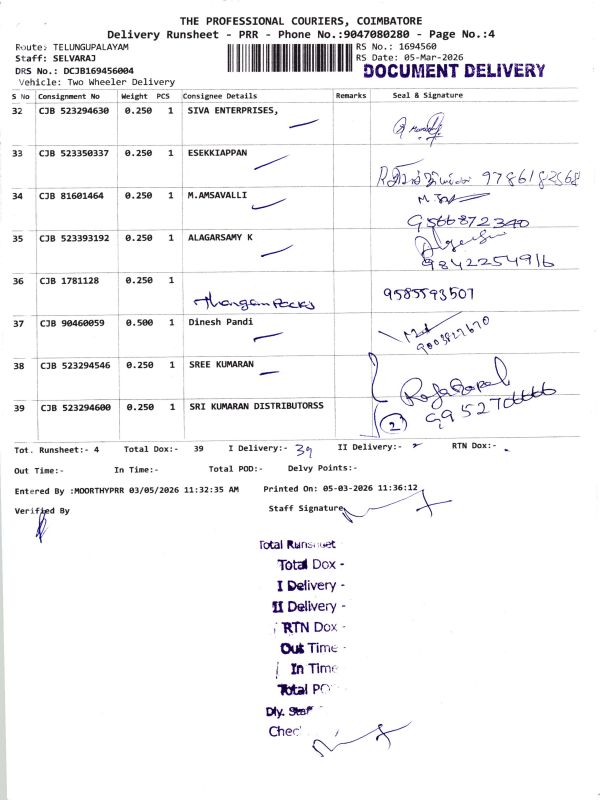 THE PROFESSIONAL COURIERS, COIMBATORE
Delivery Runsheet - PRR - Phone No.:9047080280 - Page No.:4
Route: TELUNGUPALAYAM
RS No.: 1694560
Staff: SELVARAJ
RS Date: 05-Mar-2026
DRS No.: DCJB169456004
DOCUMENT DELIVERY
Vehicle: Two Wheeler Delivery
S No Consignment No Weight PCS Consignee Details Remarks Seal & Signature
32 CJB 523294630 0.250 1 SIVA ENTERPRISES,
33 CJB 523350337 0.250 1 ESEKKIAPPAN
9786182568
34 CJB 81601464 0.250 1 M.AMSAVALLI
9566872340
35 CJB 523393192 0.250 1 ALAGARSAMY K
9842254916
36 CJB 1781128 0.250 1
Thangam Packs 9585593507
37 CJB 90460059 0.500 1 Dinesh Pandi
9003827670
38 CJB 523294546 0.250 1 SREE KUMARAN
Rajagopal
39 CJB 523294600 0.250 1 SRI KUMARAN DISTRIBUTORSS
2
Tot. Runsheet:- 4 Total Dox:- 39 I Delivery:- 39 II Delivery:- RTN Dox:-
Out Time:- In Time:- Total POD:- Delvy Points:-
Entered By :MOORTHYPRR 03/05/2026 11:32:35 AM Printed On: 05-03-2026 11:36:12
Verified By Staff Signature
Total Runsheet
Total Dox -
I Delivery -
II Delivery -
RTN Dox -
Out Time -
In Time
Total PO
Dly. Staf
Chec